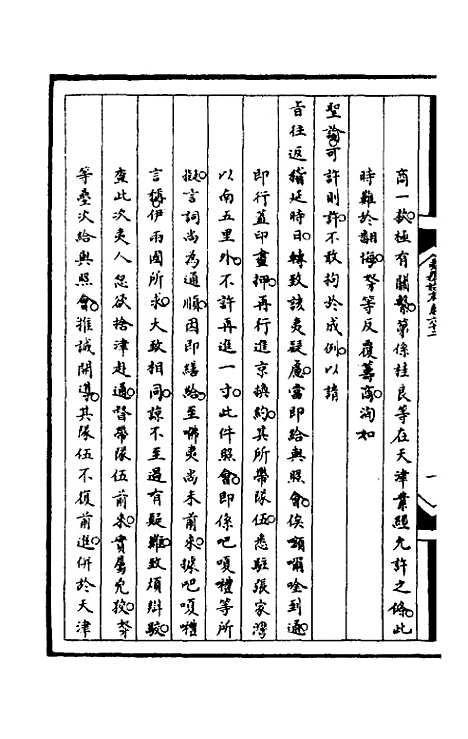 商一款極有關繫第係桂良等在天津業經允許之條此
時難於翻悔奴才等反覆籌商洵如
聖諭可許則許不敢拘於成例以請
旨往返稽延時日轉致該夷疑慮當即給與照會俟額爾唫到通
即行蓋印畫押再行進京換約其所帶隊伍悉駐張家灣
以南五里外不許再進一寸此件照會即係吧嗄禮等所
擬言詞尚為通順因即繕給至咈夷尚未前來據吧嗄禮
言稱伊兩國所求大致相同諒不至過有疑難致煩辯駁
查此次夷人忽欲捨津赴通督帶隊伍前來實屬兇狡奴才
等疊次給與照會推誠開導其隊伍不復前進併於天津
一